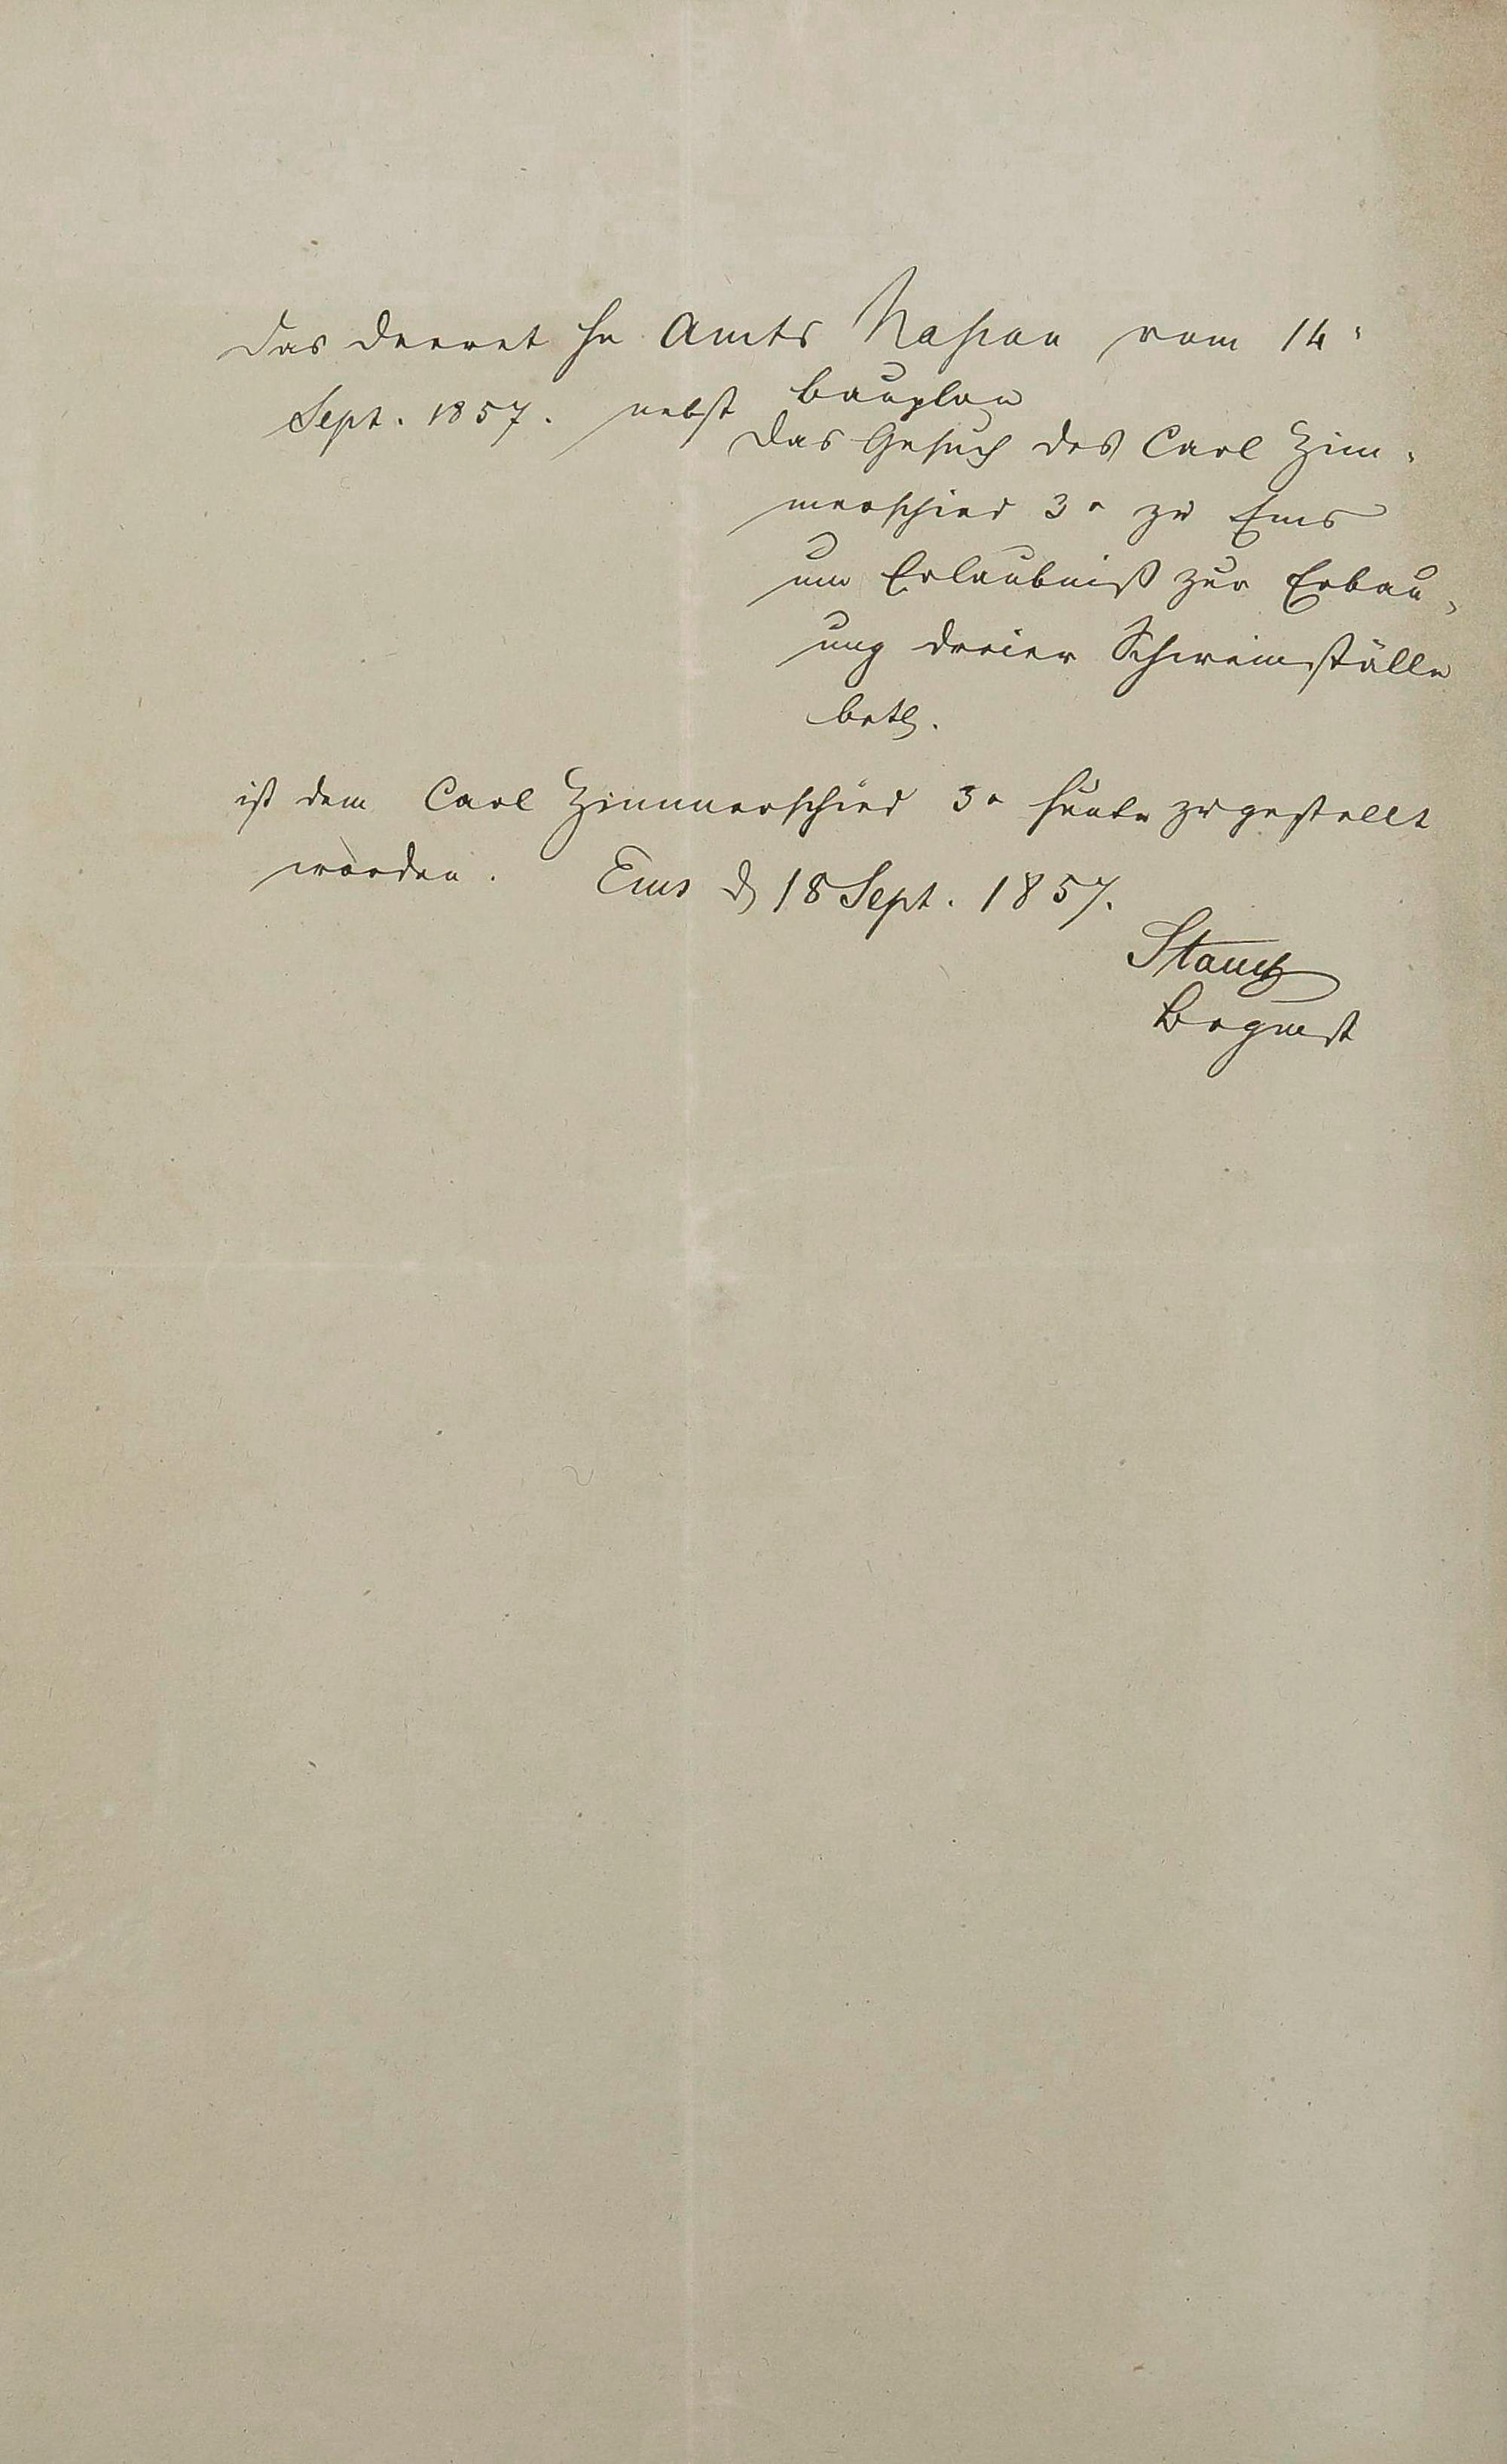 Das Decret Hn Amts Nassau vom 14.
Sept. 1857. nebst Bauplan
das Gesuch des Carl Zim-
merschied 3r zu Ems
um Erlaubniß zur Erbau-
ung dreier Schweinställe
betr.
ist dem Carl Zimmerschied 3r heute zugestellt
worden. Ems d 18 Sept. 1857.